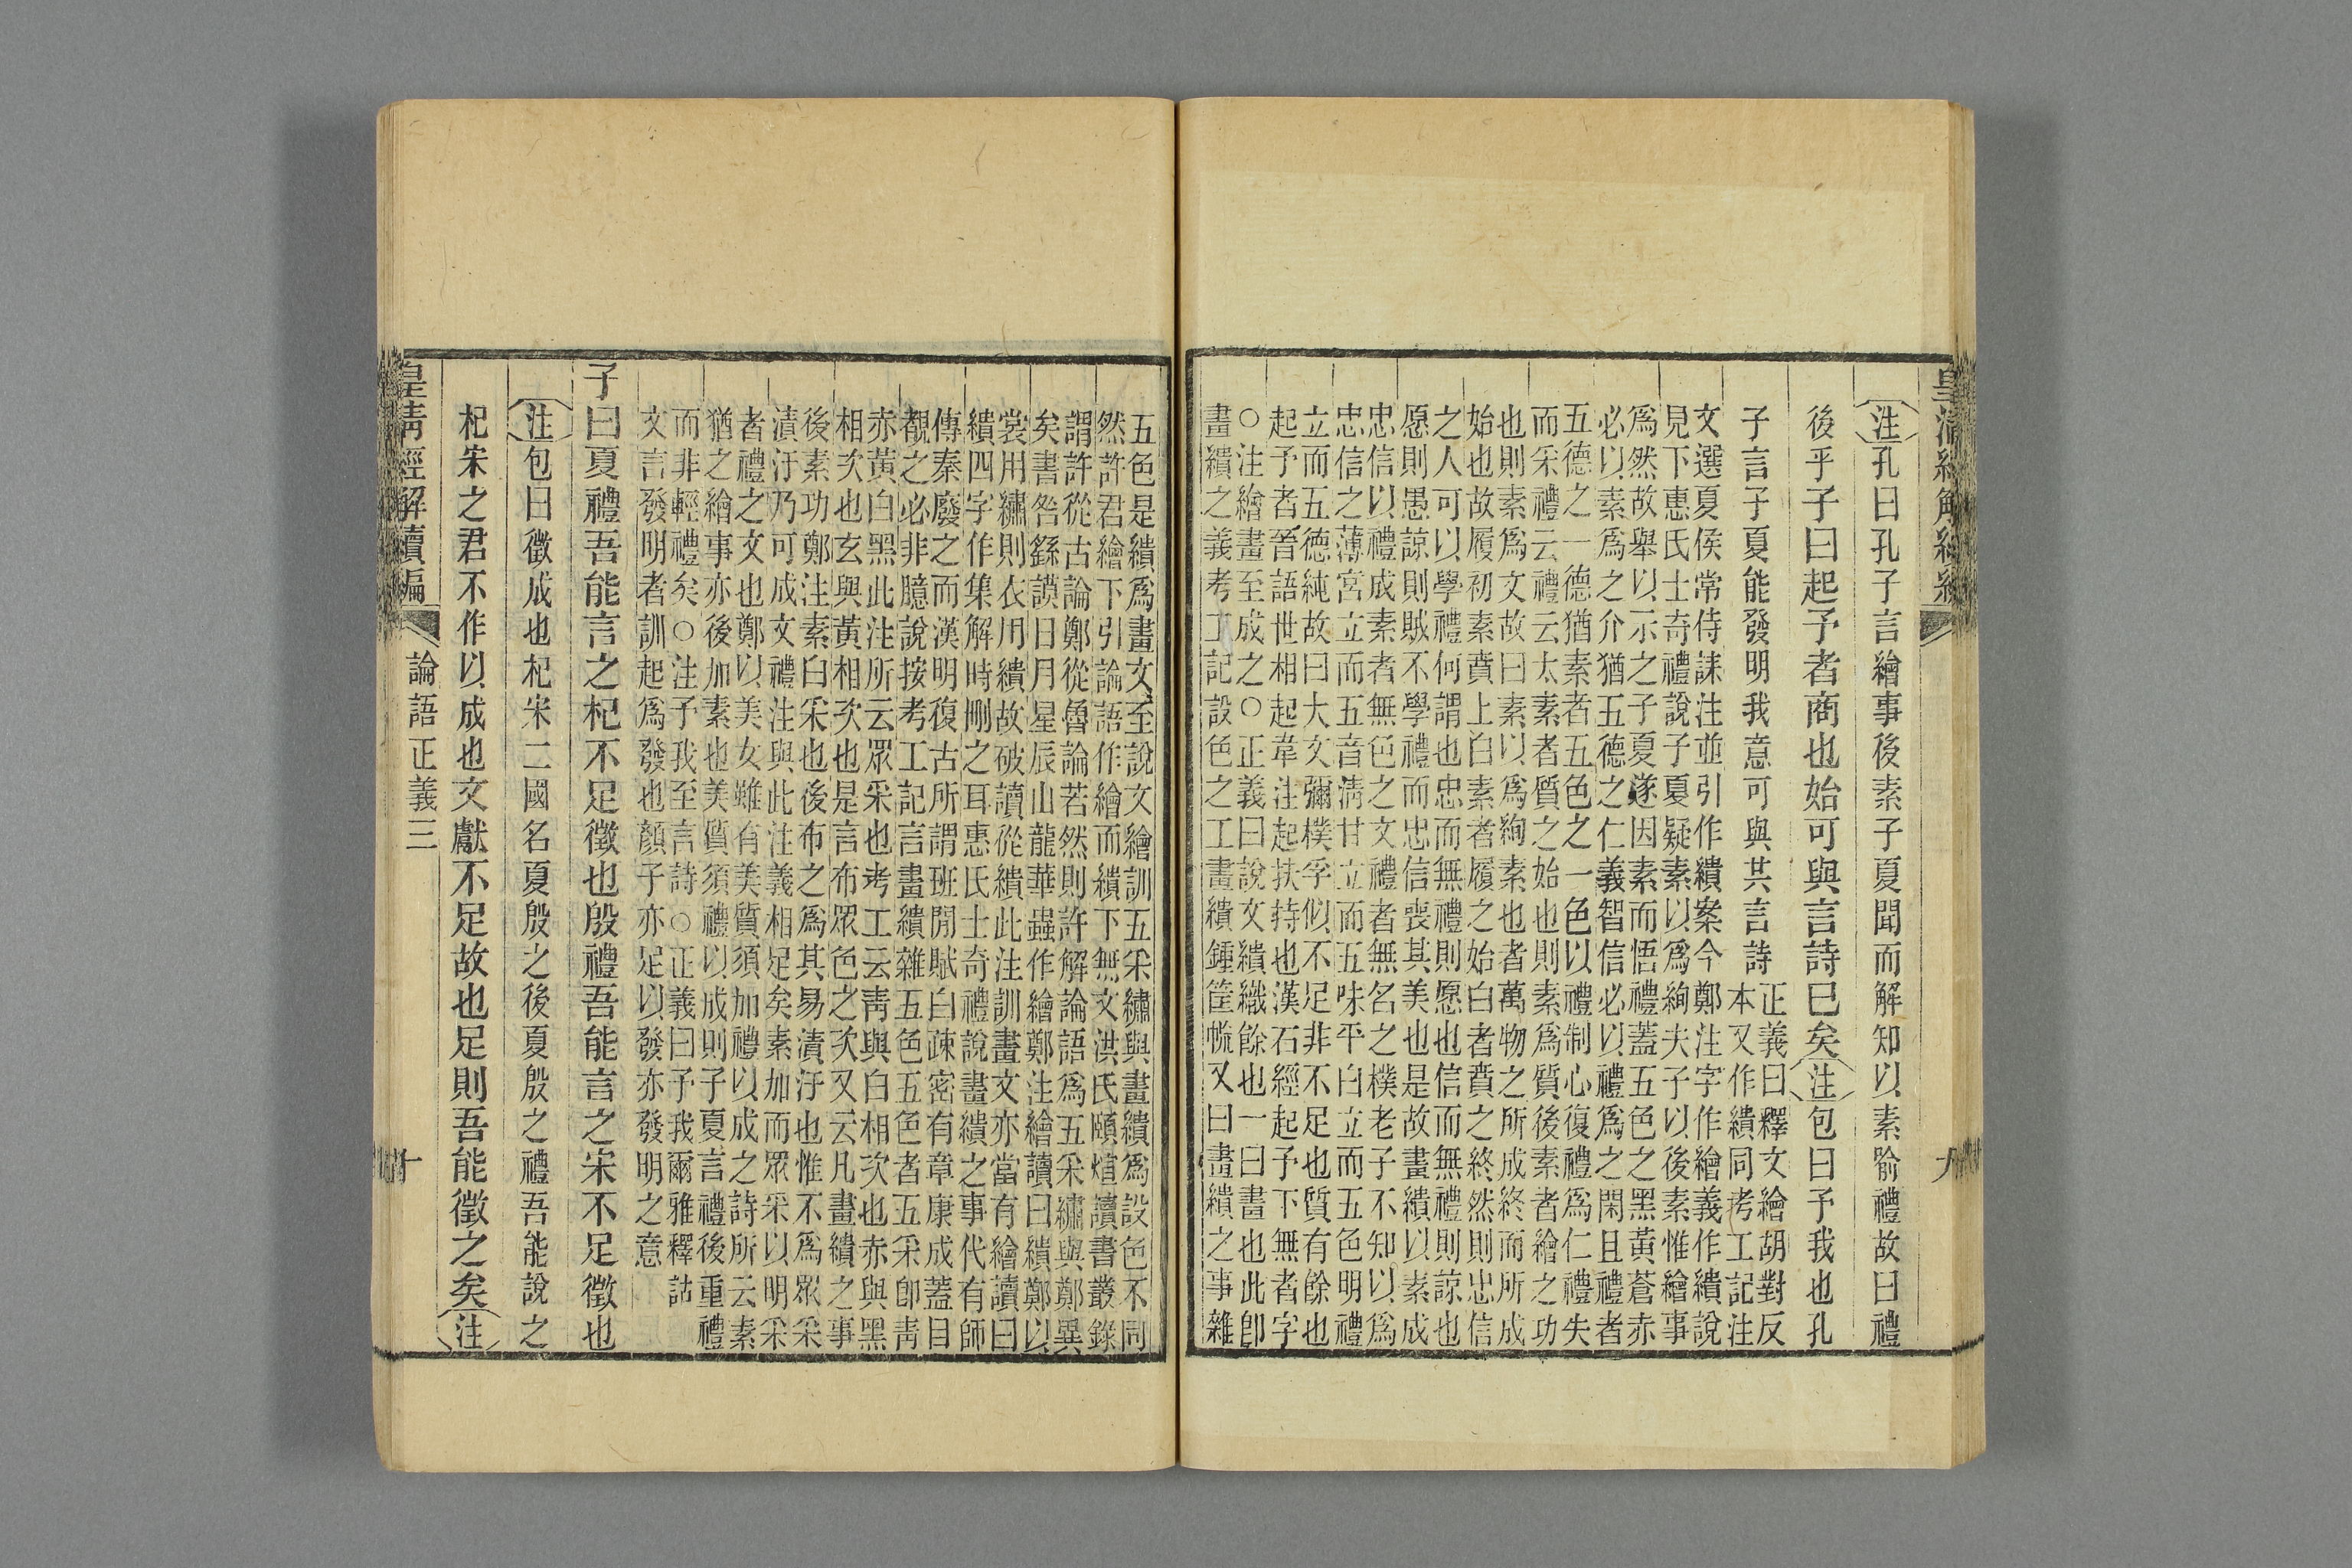 皇清經解續編
九
注孔曰孔子言繪事後素子夏聞而解知以素喻禮故曰禮
後乎子曰起予者商也始可與言詩已矣注包曰予我也孔
子言子夏能發明我意可與共言詩
正義曰釋文繪胡對反
本又作繢同考工記注
文選夏侯常侍誄注並引作繢案今鄭注字作繪義作繢說
見下惠氏士奇禮說子夏疑素以爲絢夫子以後素惟繪事
爲然故舉以示之子夏遂因素而悟禮蓋五色之黑黃蒼赤
必以素爲之介猶五德之仁義智信必以禮爲之閑且禮者
五德之一德猶素者五色之一色以禮制心復禮爲仁禮失
而采禮云禮云太素者質之始也則素爲質後素者繪之功
也則素爲文故曰素以爲絢素也者萬物之所成終而所成
始也故履初素賁上白素者履之始白者賁之終然則忠信
之人可以學禮何謂也忠而無禮則愿也信而無禮則諒也
愿則愚諒則賊不學禮而忠信喪其美也是故畫繢以素成
忠信以禮成素者無色之文禮者無名之樸老子不知以爲
忠信之薄宮立而五音淸甘立而五味平白立而五色明禮
立而五德純故曰大文彌樸孚似不足非不足也質有餘也
起予者晉語世相起韋注起扶持也漢石經起予下無者字
○注繪畫至成之○正義曰說文繢織餘也一曰畫也此卽
畫繢之義考工記設色之工畫繢鍾筐㡛又曰畫繢之事雜
五色是繢爲畫文至說文繪訓五采繡與畫繢爲設色不同
然許君繪下引論語作繪而繢下無文洪氏頤煊讀書叢錄
謂許從古論鄭從魯論若然則許解論語爲五采繡與鄭異
矣書咎繇謨日月星辰山龍華蟲作繪鄭注繪讀曰繢鄭以
裳用繡則衣用繢故破讀從繢此注訓畫文亦當有繪讀曰
繢四字作集解時刪之耳惠氏士奇禮說畫繢之事代有師
傳秦廢之而漢明復古所謂班閒賦白疎密有章康成蓋目
覩之必非臆說按考工記言畫繢雜五色五色者五采卽靑
赤黃白黑此注所云眾采也考工云靑與白相次也赤與黑
相次也玄與黃相次也是言布眾色之次又云凡畫繢之事
後素功鄭注素白采也後布之爲其易漬汙也惟不爲眾采
漬汙乃可成文禮注與此注義相足矣素加而眾采以明采
者禮之文也鄭以美女雖有美質須加禮以成之詩所云素
猶之繪事亦後加素也美質須禮以成則子夏言禮後重禮
而非輕禮矣○注予我至言詩○正義曰予我爾雅釋詁
文言發明者訓起爲發也顏子亦足以發亦發明之意
子曰夏禮吾能言之杞不足徵也殷禮吾能言之宋不足徵也
注包曰徵成也杞宋二國名夏殷之後夏殷之禮吾能說之
杞宋之君不作以成也文獻不足故也足則吾能徵之矣注
皇清經解續編 論語正義三 十